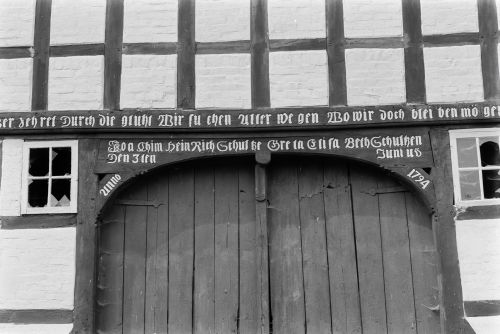 zer zeh ret Durch die gluht Wir su chen aller we gen Wo wir doch blei ben mö gen
Joa Chim HeinRich Schul ße Gre ta Elisa Beth Schulhen
Den 3 ten Juni us
Anno 1794